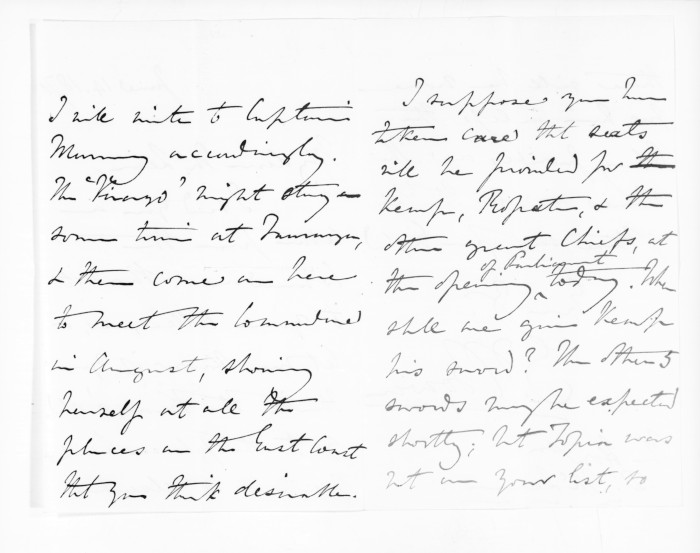 I will write to Captain
accordingly.
The "Virago" might stay a
some time at Tauranga,
& then come on here
to meet the Commodore
in August, showing
herself at all the
places on the East Coast
tht you think desirable.
I suppose you have
taken care tht seats
will be provided for the
Kemp, Ropata, & the
other great Chiefs, at
the opening of Parliament today. When
shll we give Kemp
his sword? The other 5
swords may be expected
shortly; but Topia was
not on your list, so